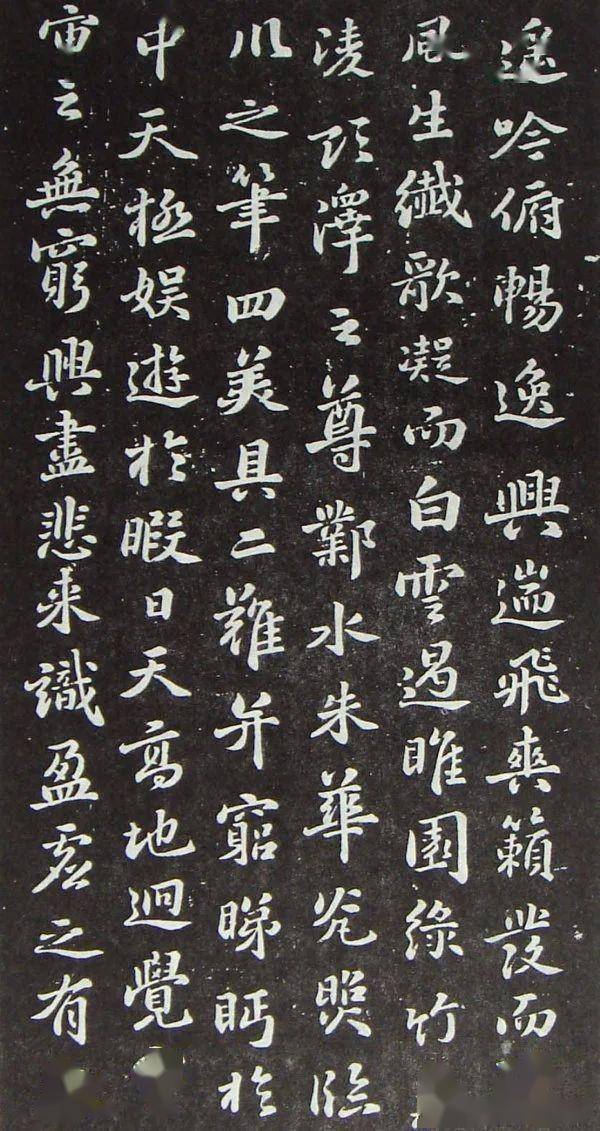 遙吟俯暢逸興遄飛爽籟發而
風生纖歌凝而白雲遏睢園綠竹
凌彭澤之尊鄴水朱華光照臨
川之筆四美具二難并窮睇眄於
中天極娛遊於暇日天高地迥覺
宙之無窮興盡悲來識盈虛之有